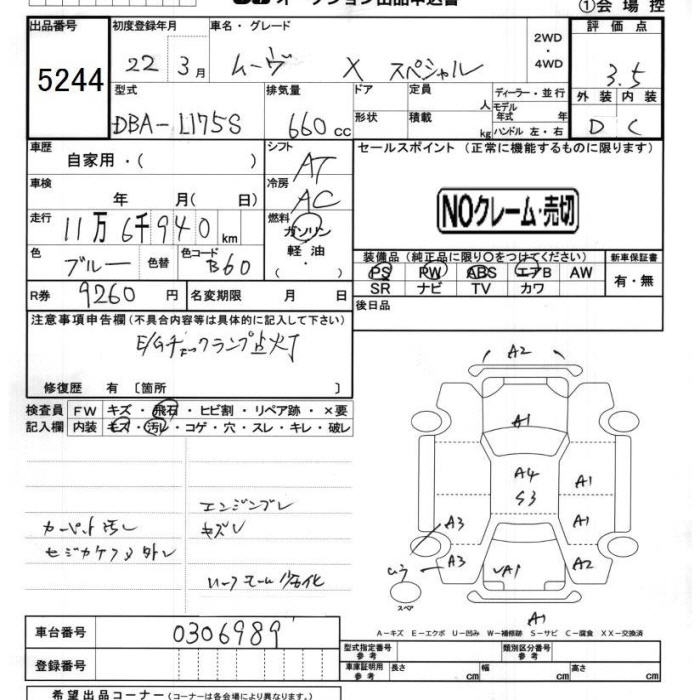 オークション出品申込書
①会場控
出品番号
5244
初度登録年月
車名・グレード
22 3月
ムーヴ X スペシャル
2WD
・
4WD
評価点
3.5
外装 内装
D C
型式
DBA-L175S
排気量
660cc
ドア
形状
定員
人
積載
kg
ディーラー・並行
モデル
年式 年
ハンドル 左・右
車歴
自家用・( )
シフト
AT
セールスポイント (正常に機能するものに限ります)
車検
年 月( 日)
冷房
AC
NOクレーム・売切
走行
11万6千940km
燃料
ガソリン
軽油・
( )
色
ブルー
色替
色コード
B60
装備品(純正品に限り〇をつけてください)
新車保証書
PS PW ABS エアB AW
SR ナビ TV カワ
有・無
R券
9260円
名変期限 月 日
後日品
注意事項申告欄(不具合内容等は具体的に記入して下さい)
E/Gチェックランプ点灯
修復歴 有〔箇所 〕
検査員
記入欄
FW キズ・飛石・ヒビ割・リペア跡・×要
内装 キズ・汚レ・コゲ・穴・スレ・キレ・破レ
A2
A1
A4
S3
A1
A1
A3
A3
A2
A1
A1
スペア
エンジンブレ
キズレ
カーペット汚レ
セジカケフタ外レ
A-キズ E-エクボ U-凹み W-補修跡 S-サビ C-腐食 XX-交換済
車台番号
0306989
登録番号
型式指定番号
参考
類別区分番号
参考
車庫証明用
参考
長さ cm
幅 cm
高さ cm
希望出品コーナー(コーナーは各会場により異なります。)